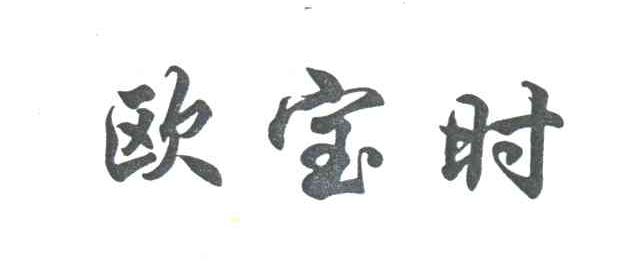 欧宝时